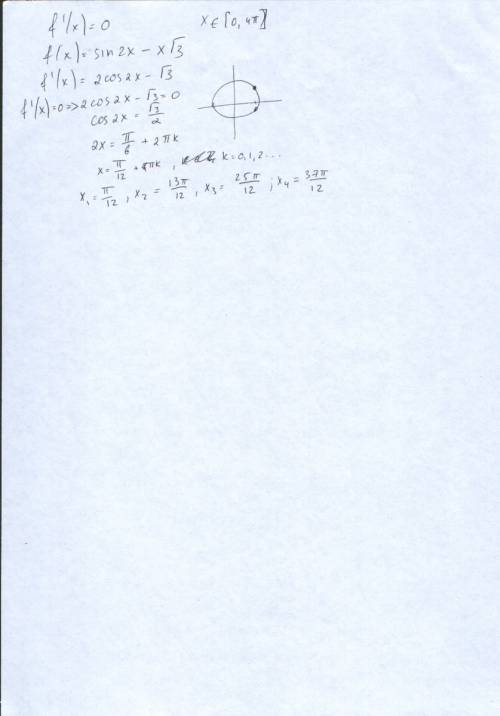 f'(x)=0 x∈[0,4π]
f(x)=sin2x-x√3
f'(x)=2cos2x-√3
f'(x)=0=>2cos2x-√3=0
cos2x=√3/2
2x=π/6+2πk
x=π/12+πk, k=0,1,2...
x₁=π/12, x₂=13π/12, x₃=25π/12; x₄=37π/12